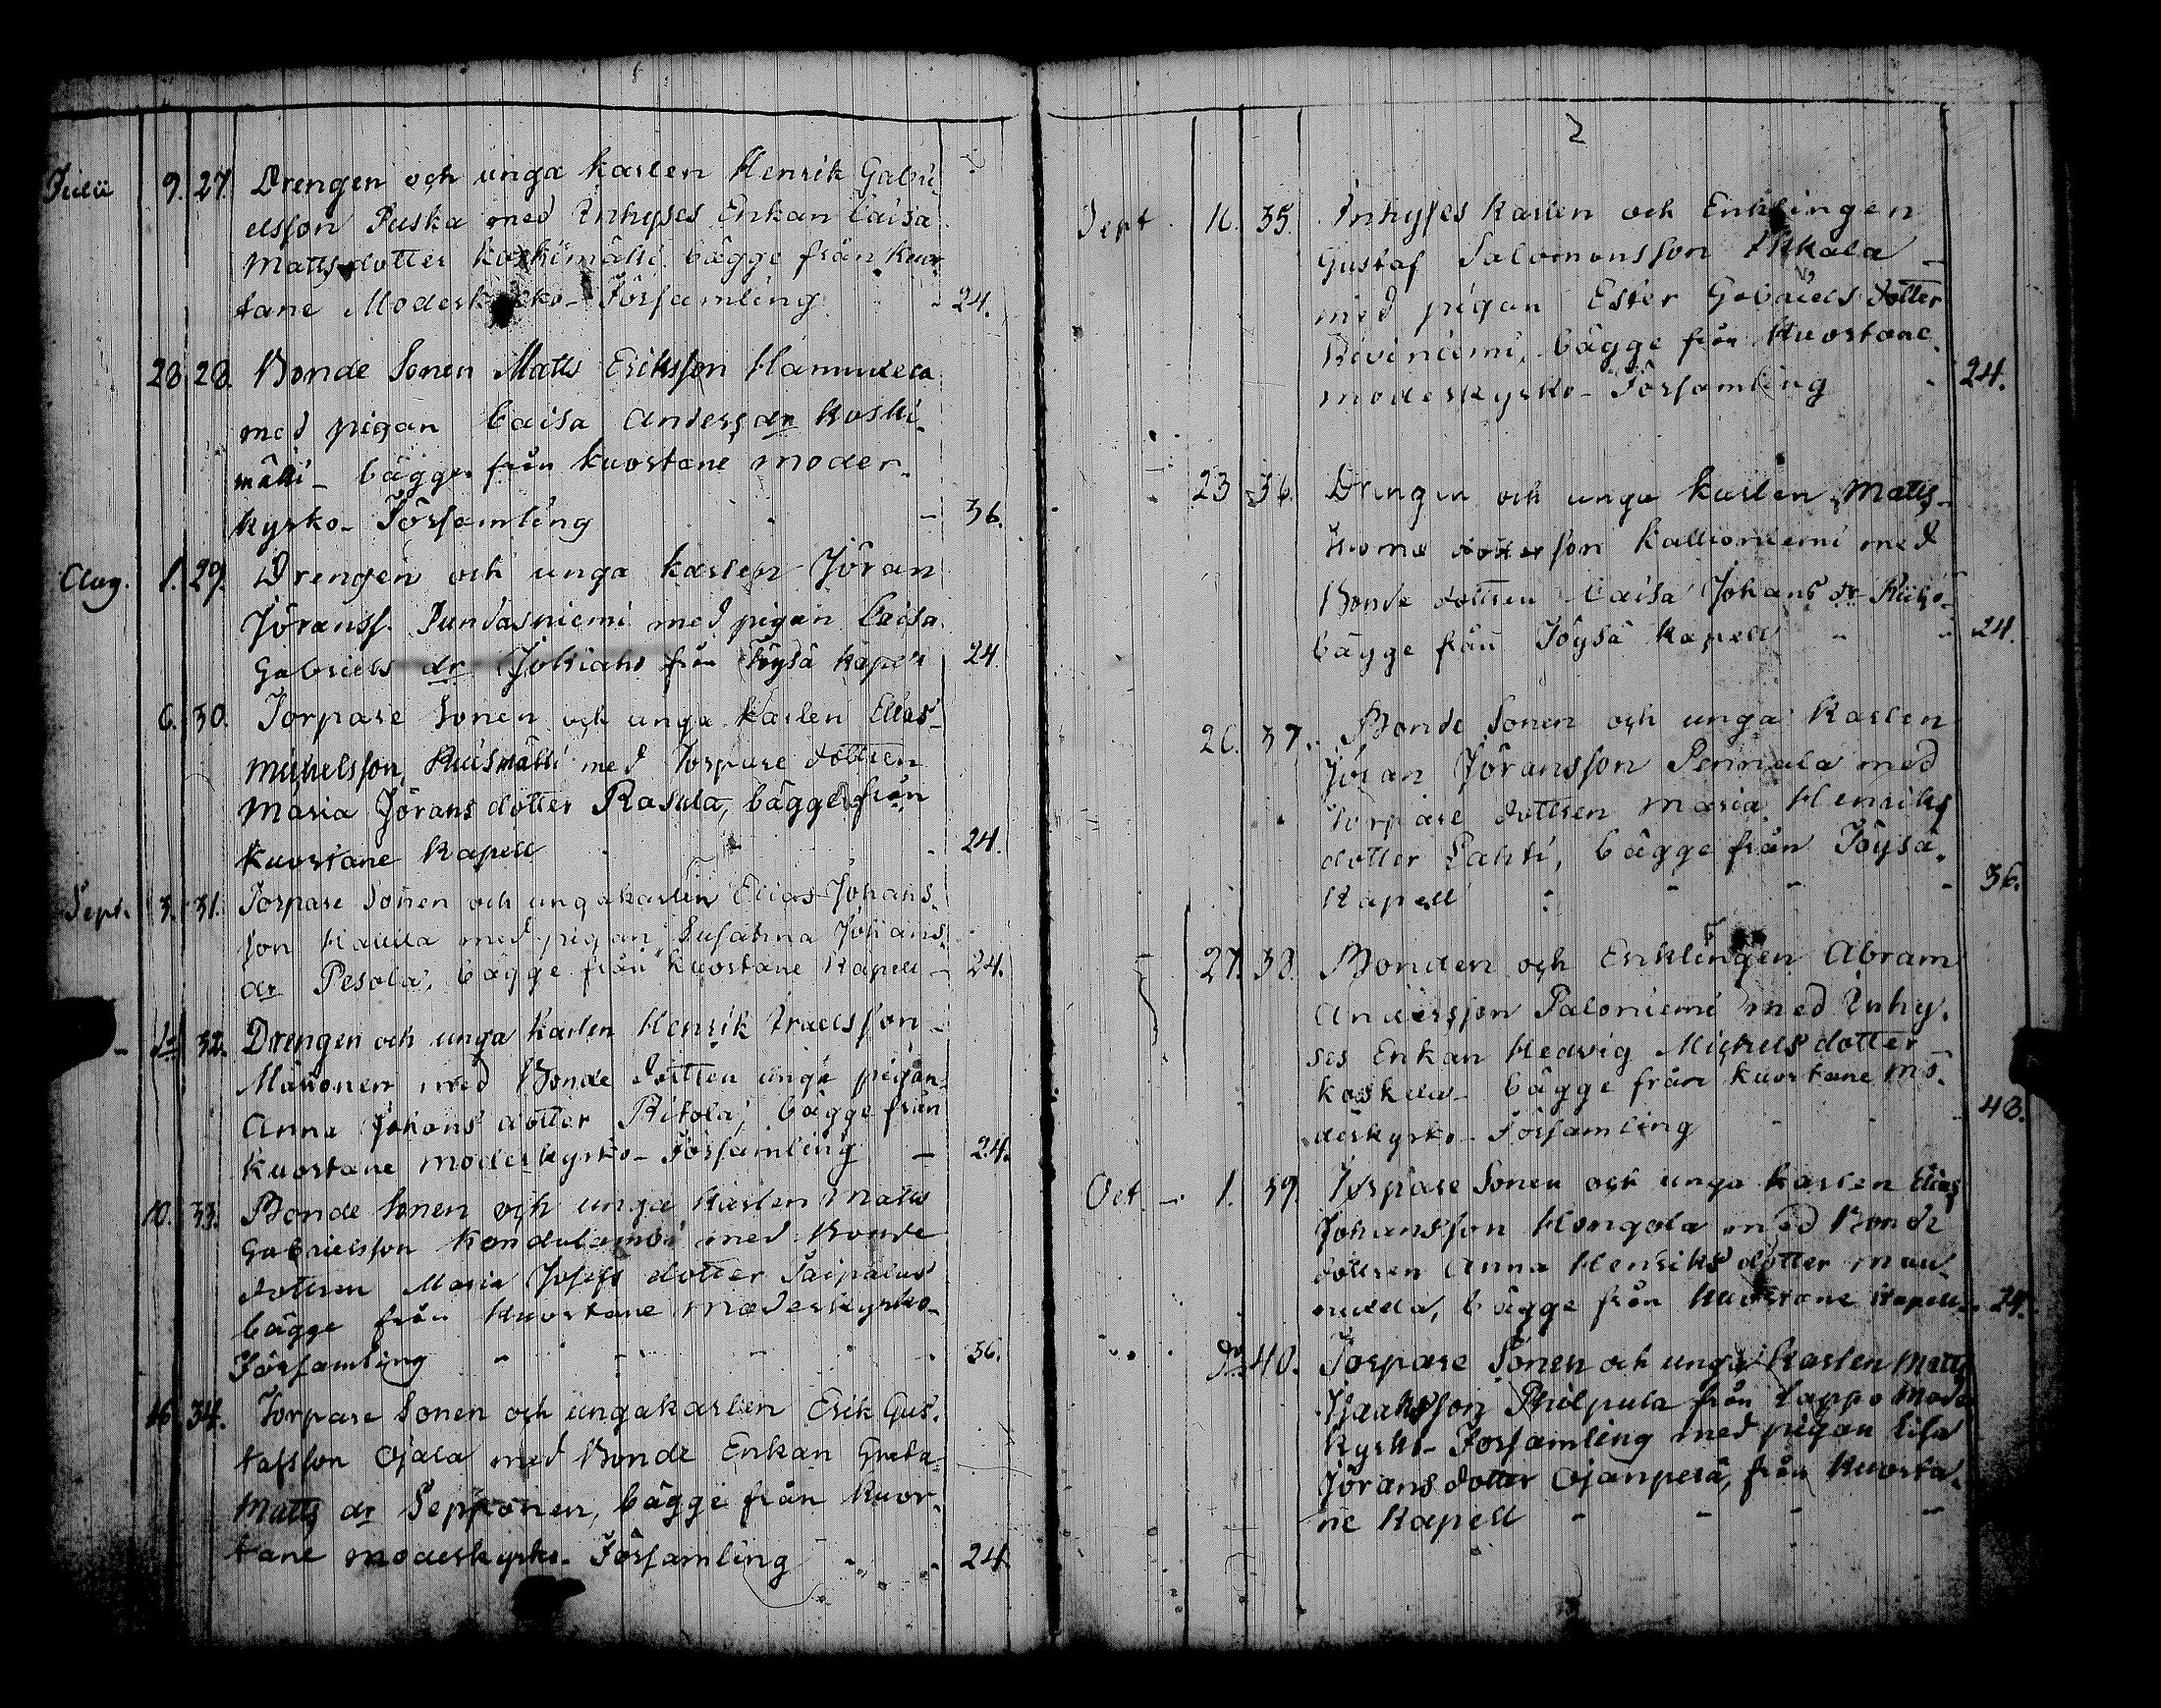 Julii 9. 27. Drengen och unga karlen Henrik Gabri-
elsson Puska med Inhyses Enkan Caisa
Matts dotter Koskimäki bägge från Kuor-
tane Moderkyrko-Församling 24.
28 28. Bonde Sonen Matts Eriksson
med pigan Caisa Anders dr Koski-
mäki - bägge från Kuortane moder-
kyrko-Församling - 36.
Aug. 1. 29. Drengen och unga karlen Jöran
Jöranss. med pigan Caisa
Gabriels dr från Töysä kapell 24.
6. 30. Torpare Sonen och unga karlen Elias
Michelsson, Ruismäki med Torpare dottren
Maria Jörans dotter Rasula, bägge från
Kuortane kapell 24.
Sept. 3. 31. Torpare Sonen och unga karlen Elias Johans-
son med pigan Susanna Johans
dr Pesola, bägge från Kuortane kapell - 24.
- do 32. Drengen och unga karlen Henrik
med Bonde dottren unga pigan
Anna Johans dotter Ritola, bägge från
Kuortane moderkyrko-Församling - 24.
10. 33. Bonde Sonen och unga karlen Matts
Gabrielsson med Bonde
dottren Maria Josefs dotter
bägge från Kuortane Moderkyrko-
Församling - - - - 36.
16. 34. Torpare Sonen och unga karlen Erik Gus-
tafsson Ojala med Bonde Enkan Greta
Matts dr Sepponen, bägge från Kuor-
tane moderkyrko-Församling 24.
2
Sept. 16. 35. Inhyses karlen och Enklingen
Gustaf Salomonsson
med pigan Ester Gabriels dotter
bägge från Kuortane
moderkyrko-Församling 24.
23 36. Drengen och unga karlen Matts
Kallioniemi med
Bonde dottren Caisa Johans dr
bägge från Töysä kapell - - 24.
26. 37. Bonde Sonen och unga karlen
Jöran Jöransson Pennala med
Torpare dottren Maria Henriks
dotter Lahti, bägge från Töysä
Kapell - - - - 36.
27. 38. Bonden och Enklingen Abram
Andersson Paloniemi med Inhy-
ses Enkan Hedvig Michels dotter
Koskela - bägge från Kuortane mo-
derkyrko-Församling - - 48.
Oct. - 1. 39. Torpare Sonen och unga karlen Elias
Johansson Hongola med Bonde
dottren Anna Henriks dotter
bägge från Kuortane kapell - 24.
Do 40. Torpare Sonen och unga karlen Matts
Isaaksson Philpula från Lappo Moder
kyrko-Församling med pigan Lisa
Jörans dotter Ojanperä, från Kuorta-
ne kapell - - - -